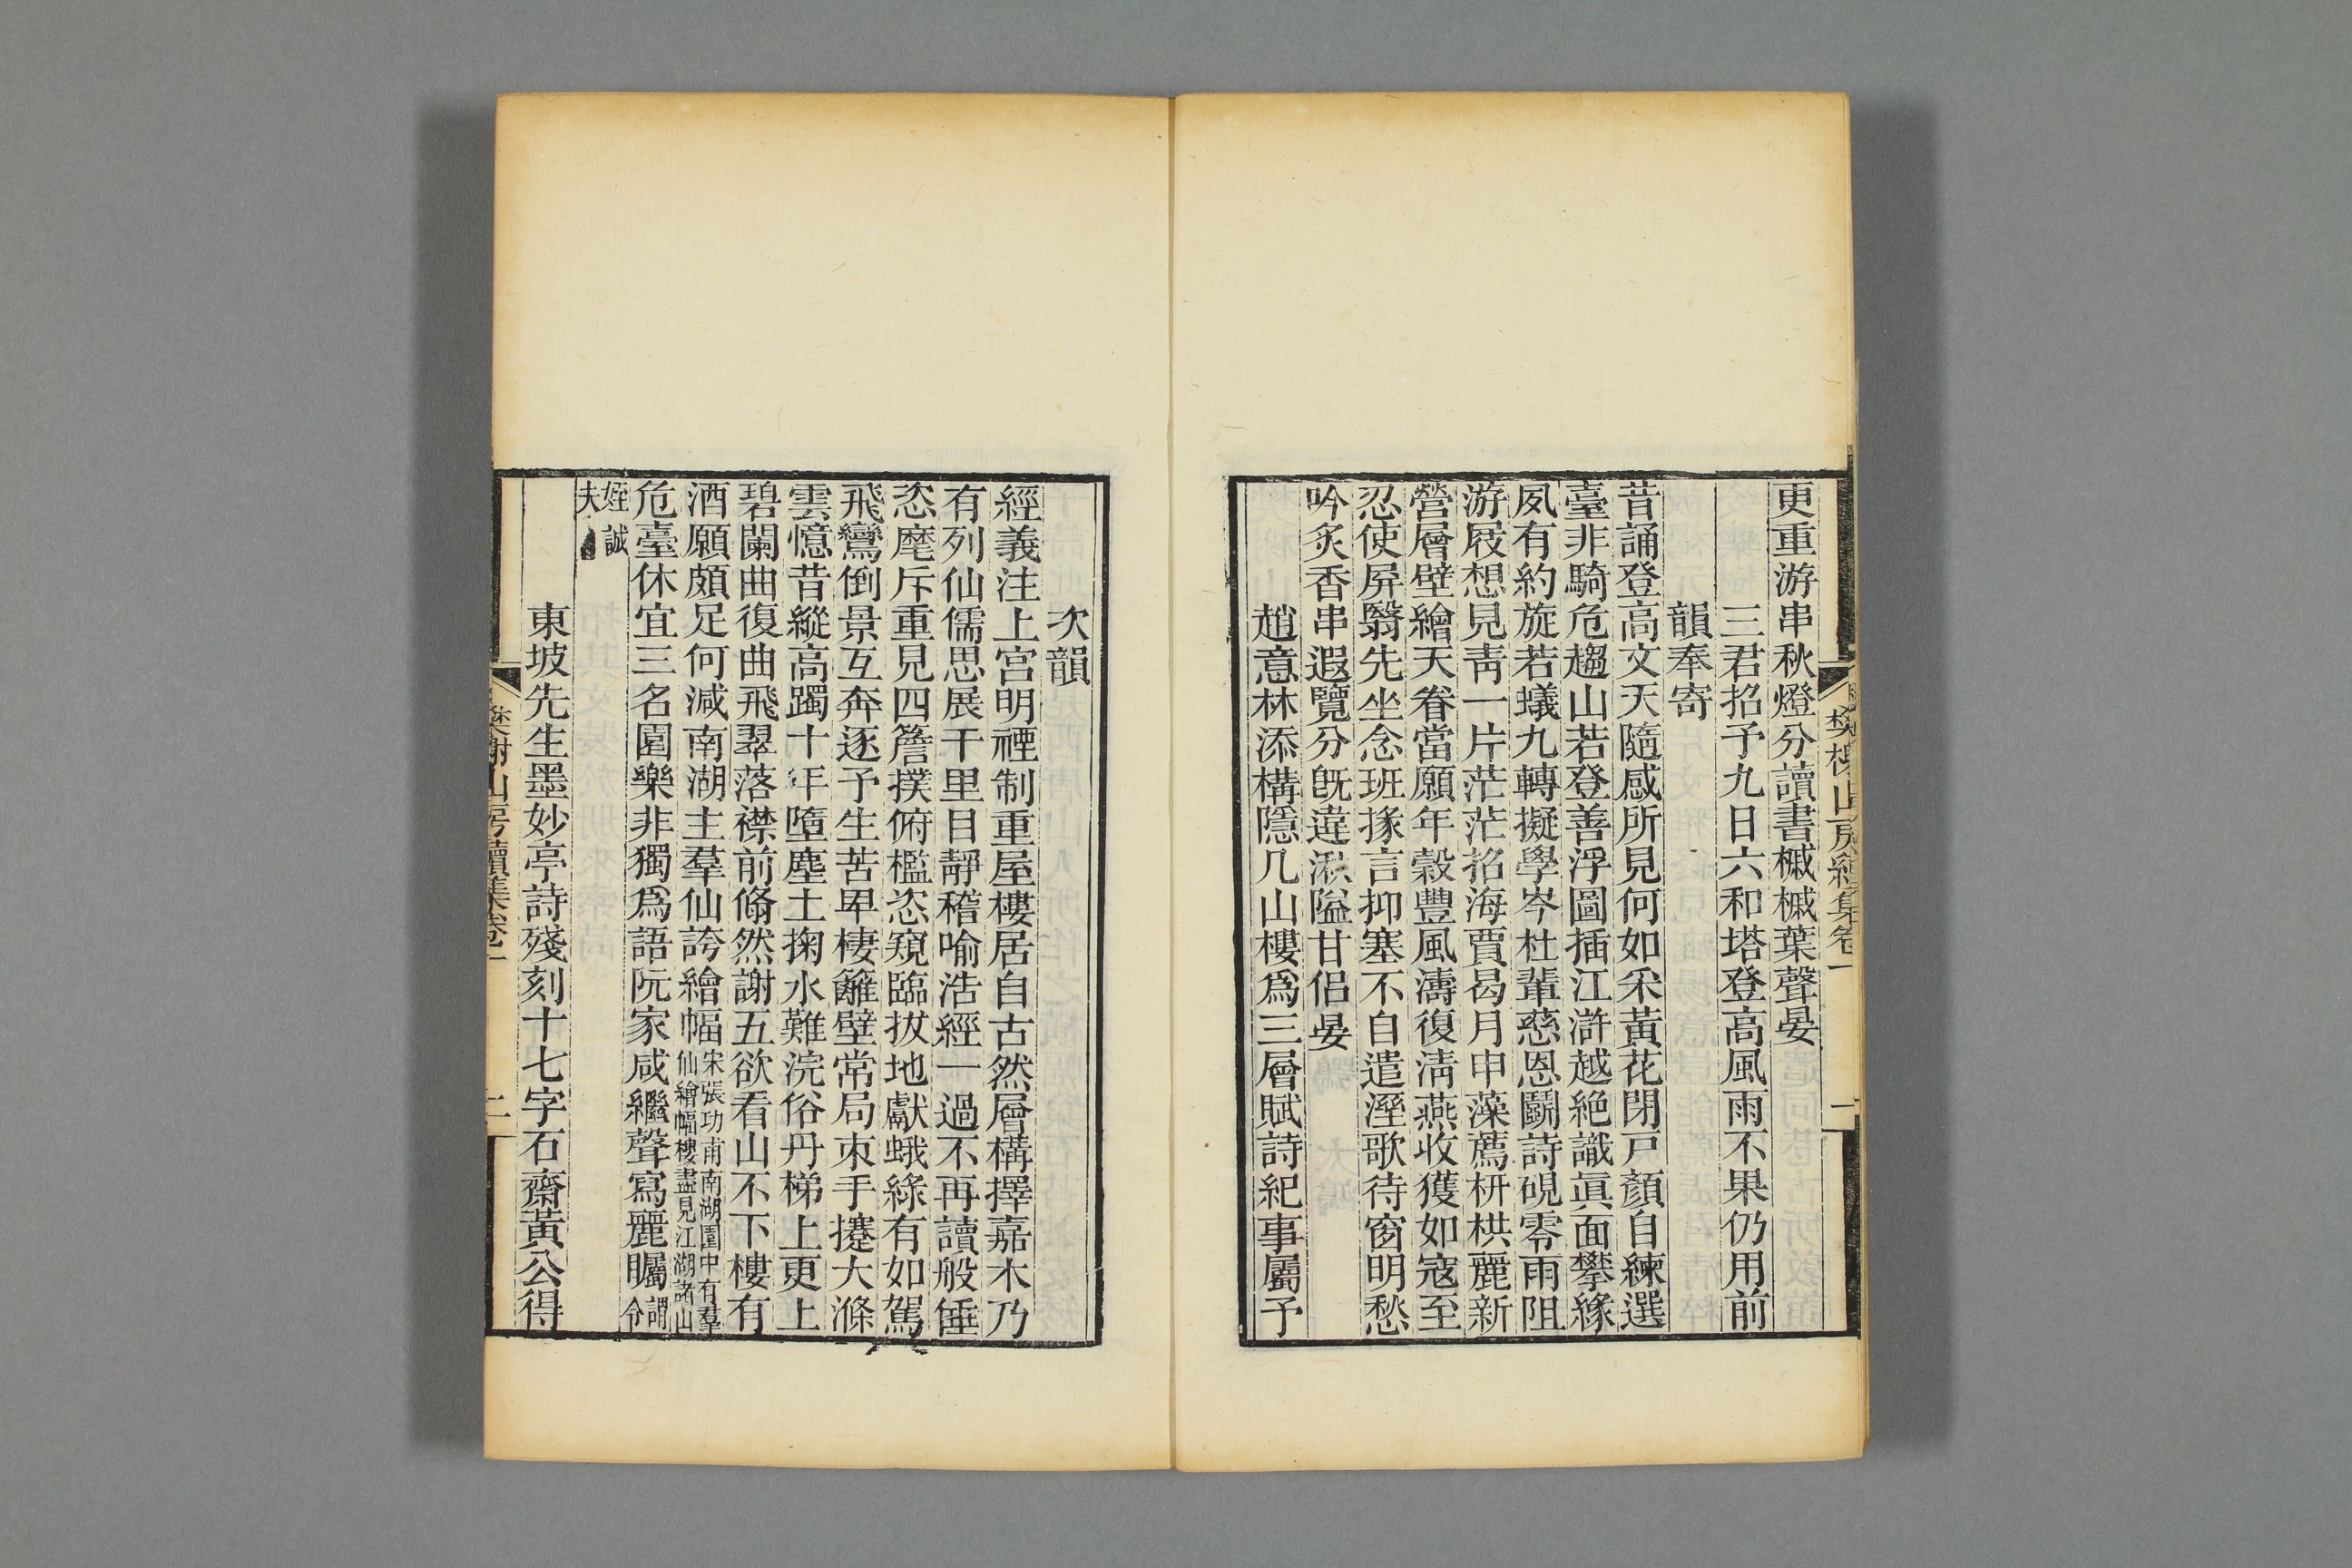 更重游串秋燈分讀書槭槭葉聲晏
三君招予九日六和塔登高風雨不果仍用前
韻奉寄
昔誦登高文天隨感所見何如采黃花閉戸顏自練選
臺非騎危趨山若登善浮圖插江滸越絶識眞面攀緣
夙有約旋若蟻九轉擬學岑杜輩慈恩鬬詩硯零雨阻
游屐想見靑一片茫茫招海賈曷月申藻薦枅栱麗新
營層壁繪天眷當願年穀豐風濤復淸燕收獲如寇至
忍使屏翳先坐念班掾言抑塞不自遣溼歌待窗明愁
吟炙香串遐覽分旣違湫隘甘侶晏
趙意林添構隱几山樓爲三層賦詩紀事屬予
次韻
經義注上宫明禋制重屋樓居自古然層構擇嘉木乃
有列仙儒思展千里目靜稽喻浩經一過不再讀般倕
恣麾斥重見四簷撲俯檻恣窺臨拔地獻蛾綠有如駕
飛鸞倒景互奔逐予生苦卑棲籬壁常局束手搴大滌
雲憶昔縱高躅十年墮塵土掬水難浣俗丹梯上更上
碧闌曲復曲飛翠落襟前翛然謝五欲看山不下樓有
酒願頗足何減南湖主羣仙誇繪幅宋張功甫南湖園中有羣仙繪幅樓盡見江湖諸山
危臺休宜三名園樂非獨爲語阮家咸繼聲寫麗矚謂令
姪誠夫
東坡先生墨妙亭詩殘刻十七字石齋黃公得
樊榭山房續集卷一
一
樊榭山房續集卷一
二